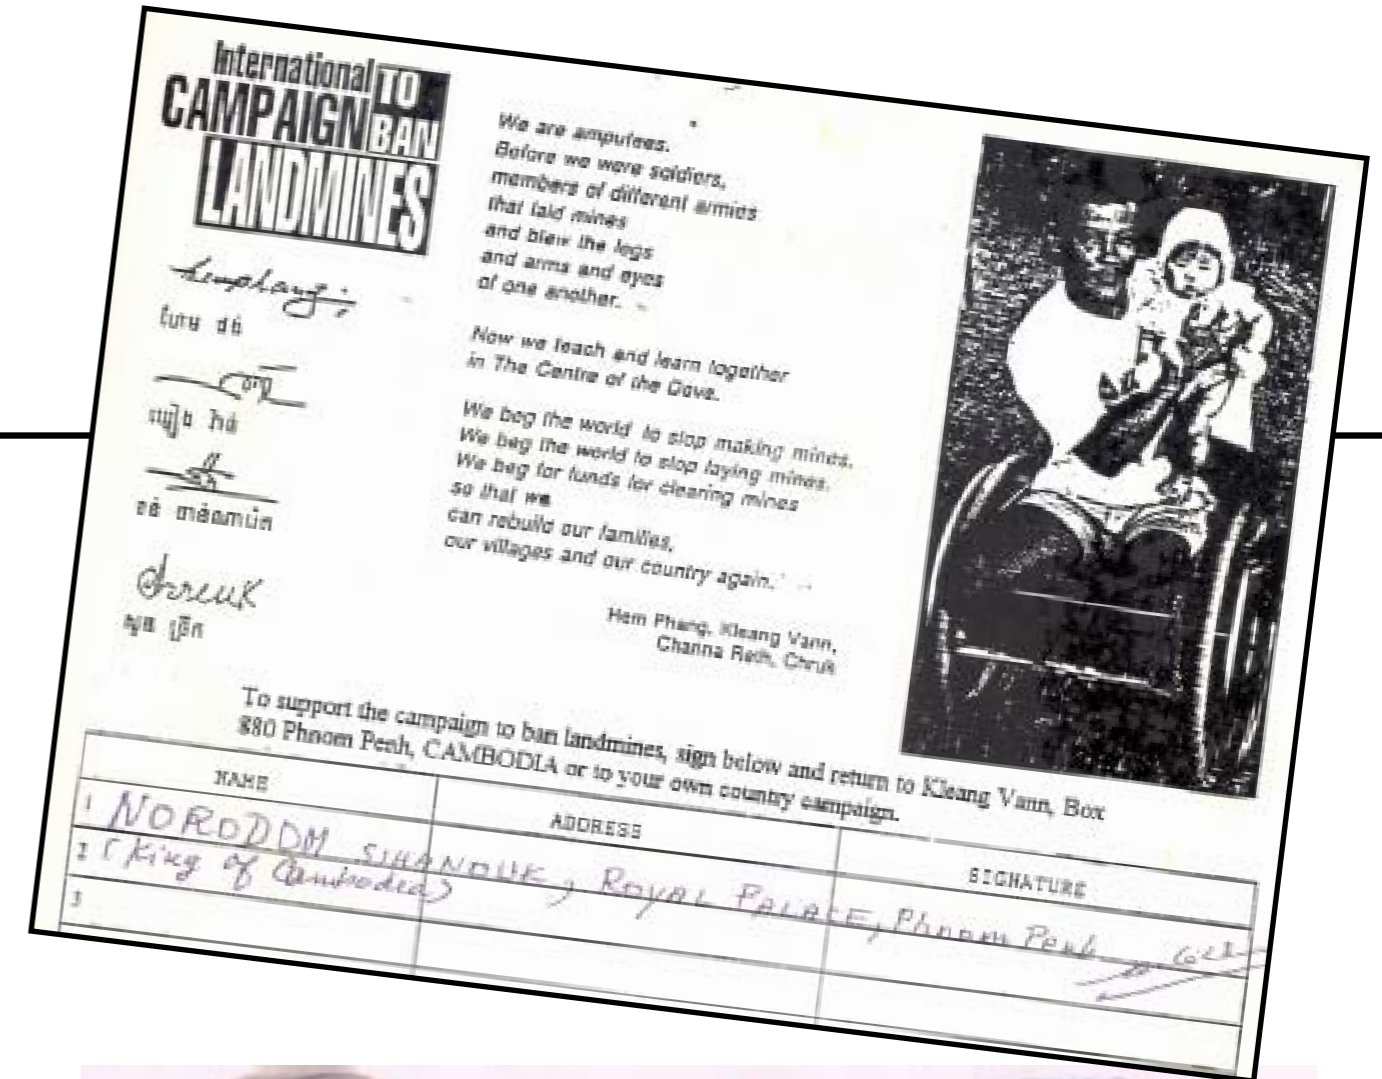 International
CAMPAIGN TO
BAN
LANDMINES
We are amputees.
Before we were soldiers,
members of different armies
that laid mines
and blew the legs
and arms and eyes
of one another.
Now we teach and learn together
in The Centre of the Dove.
We beg the world to stop making mines.
We beg the world to stop laying mines.
We beg for funds for clearing mines
so that we
can rebuild our families,
our villages and our country again.
Hem Phang, Kleang Vann,
Channa Reth, Chruk
To support the campaign to ban landmines, sign below and return to Kleang Vann, Box
880 Phnom Penh, CAMBODIA or to your own country campaign.
NAME ADDRESS SIGNATURE
1 NORODOM SIHANOUK, ROYAL PALACE, Phnom Penh
2 (King of Cambodia)
3